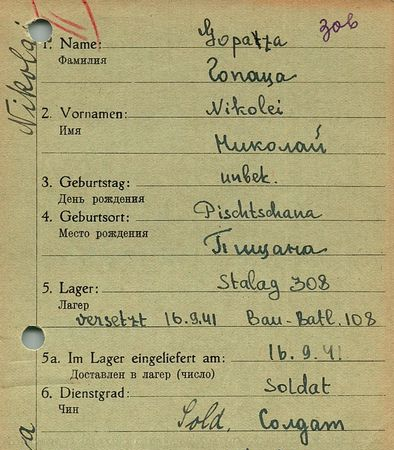 Nikolai
11
306
1. Name: Gopatza
Фамилия
Гопаца
2. Vornamen: Nikolei
Имя
Миколай
3. Geburtstag: unbek.
День рождения
4. Geburtsort: Pischtschana
Место рождения
Пищана
5. Lager: Stalag 308
Лагер
versetzt 16.9.41 Bau-Batl. 108
5a. Im Lager eingeliefert am: 16.9.41
Доставлен в лагер (число)
6. Dienstgrad: Soldat
Чин
Sold. Солдат